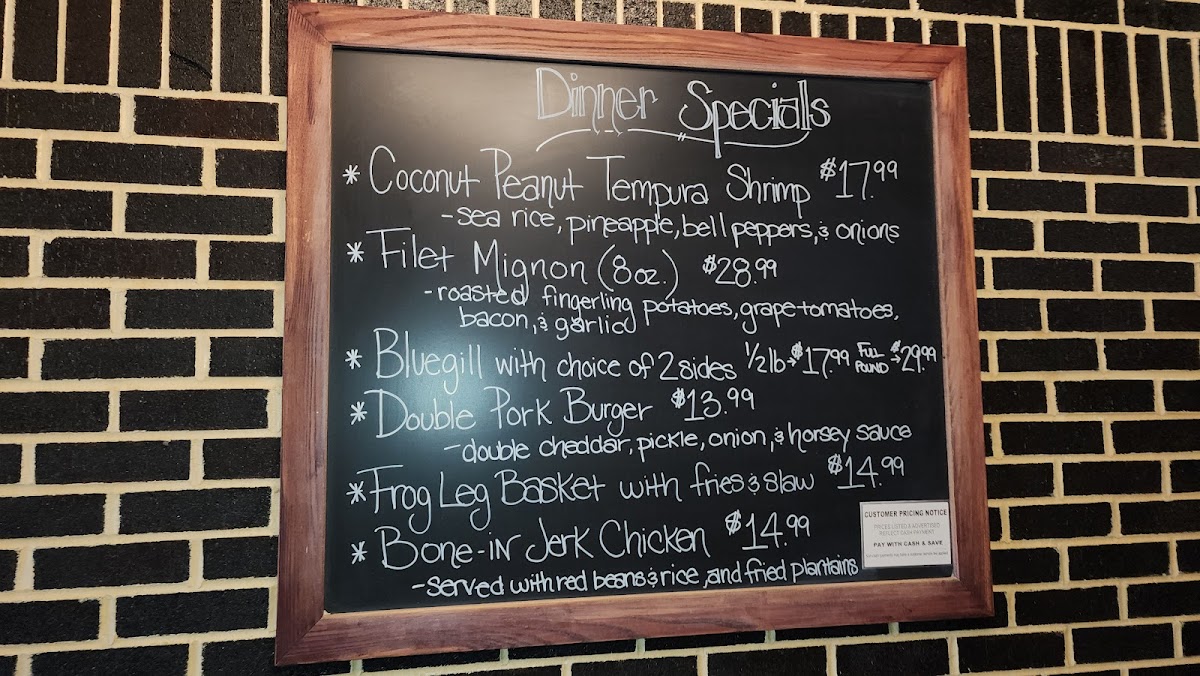 Dinner Specials
* Coconut Peanut Tempura Shrimp $17.99
- sea rice, pineapple, bell peppers, & onions
* Filet Mignon (8oz.) $28.99
- roasted fingerling potatoes, grape tomatoes,
bacon, & garlic
* Bluegill with choice of 2 sides 1/2 lb → $17.99 FULL POUND → $29.99
* Double Pork Burger $13.99
- double cheddar, pickle, onion, & horsey sauce
* Frog Leg Basket with fries & slaw $14.99
* Bone-in Jerk Chicken $14.99
- served with red beans & rice, and fried plantains
CUSTOMER PRICING NOTICE
PRICES LISTED & ADVERTISED
REFLECT CASH PAYMENT
PAY WITH CASH & SAVE